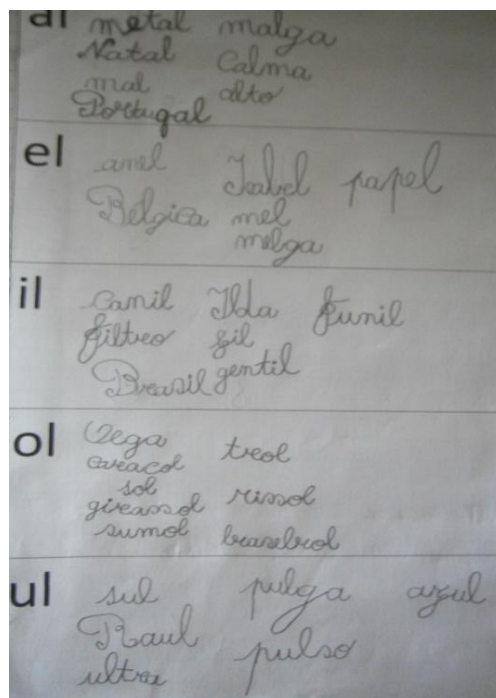 al metal malga
Natal Calma
mal alto
Portugal
el anel Isabel papel
Bélgica mel
melga
il canil Ilda funil
filtro fil
Brasil gentil
ol Olga trol
caracol
sol
girassol rissol
sumol brasebrol
ul sul pulga azul
Raul pulso
ultra